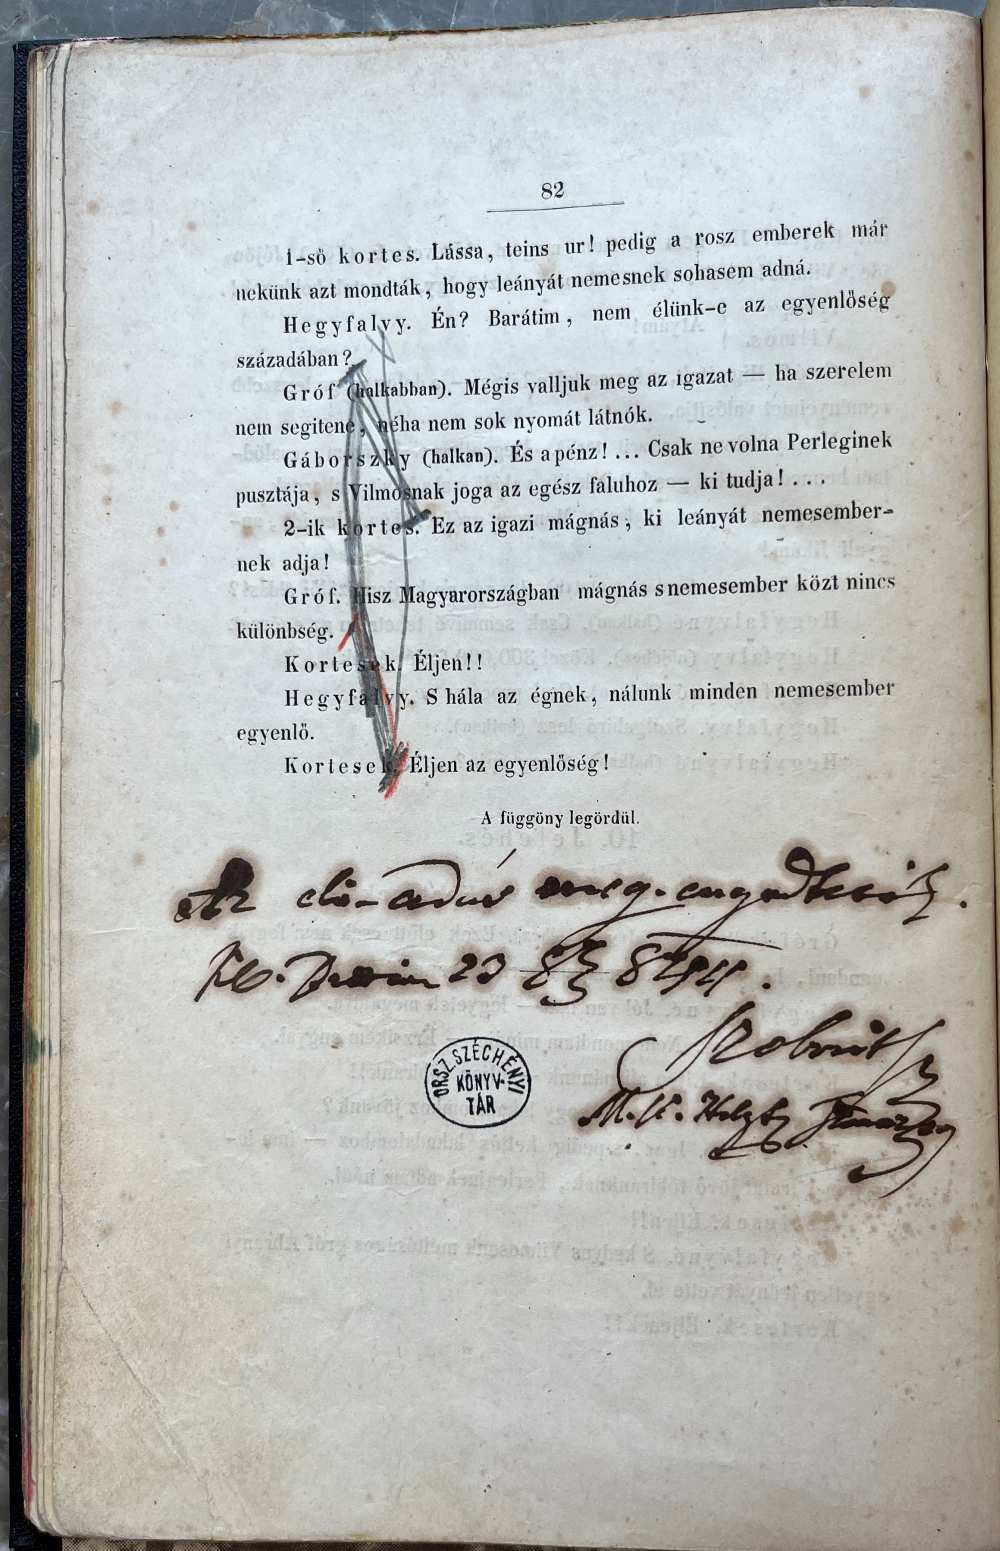 82
1-ső kortes. Lássa, teins ur! pedig a rosz emberek már
nekünk azt mondták, hogy leányát nemesnek sohasem adná.
Hegyfalvy. Én? Barátim, nem élünk-e az egyenlőség
században?
Gróf (halkabban). Mégis valljuk meg az igazat — ha szerelem
nem segitene, néha nem sok nyomát látnók.
Gáborszky (halkan). És a pénz!... Csak ne volna Perleginek
pusztája, s Vilmosnak joga az egész faluhoz — ki tudja!...
2-ik kortes. Ez az igazi mágnás, ki leányát nemesember-
nek adja!
Gróf. Hisz Magyarországban mágnás s nemesember közt nincs
különbség.
Kortesek. Éljen!!
Hegyfalvy. S hála az égnek, nálunk minden nemesember
egyenlő.
Kortesek. Éljen az egyenlőség!
A függöny legördül.
Az elő-adás meg-engedtetik.
23
ORSZ. SZÉCHÉNYI
KÖNYV-
TÁR